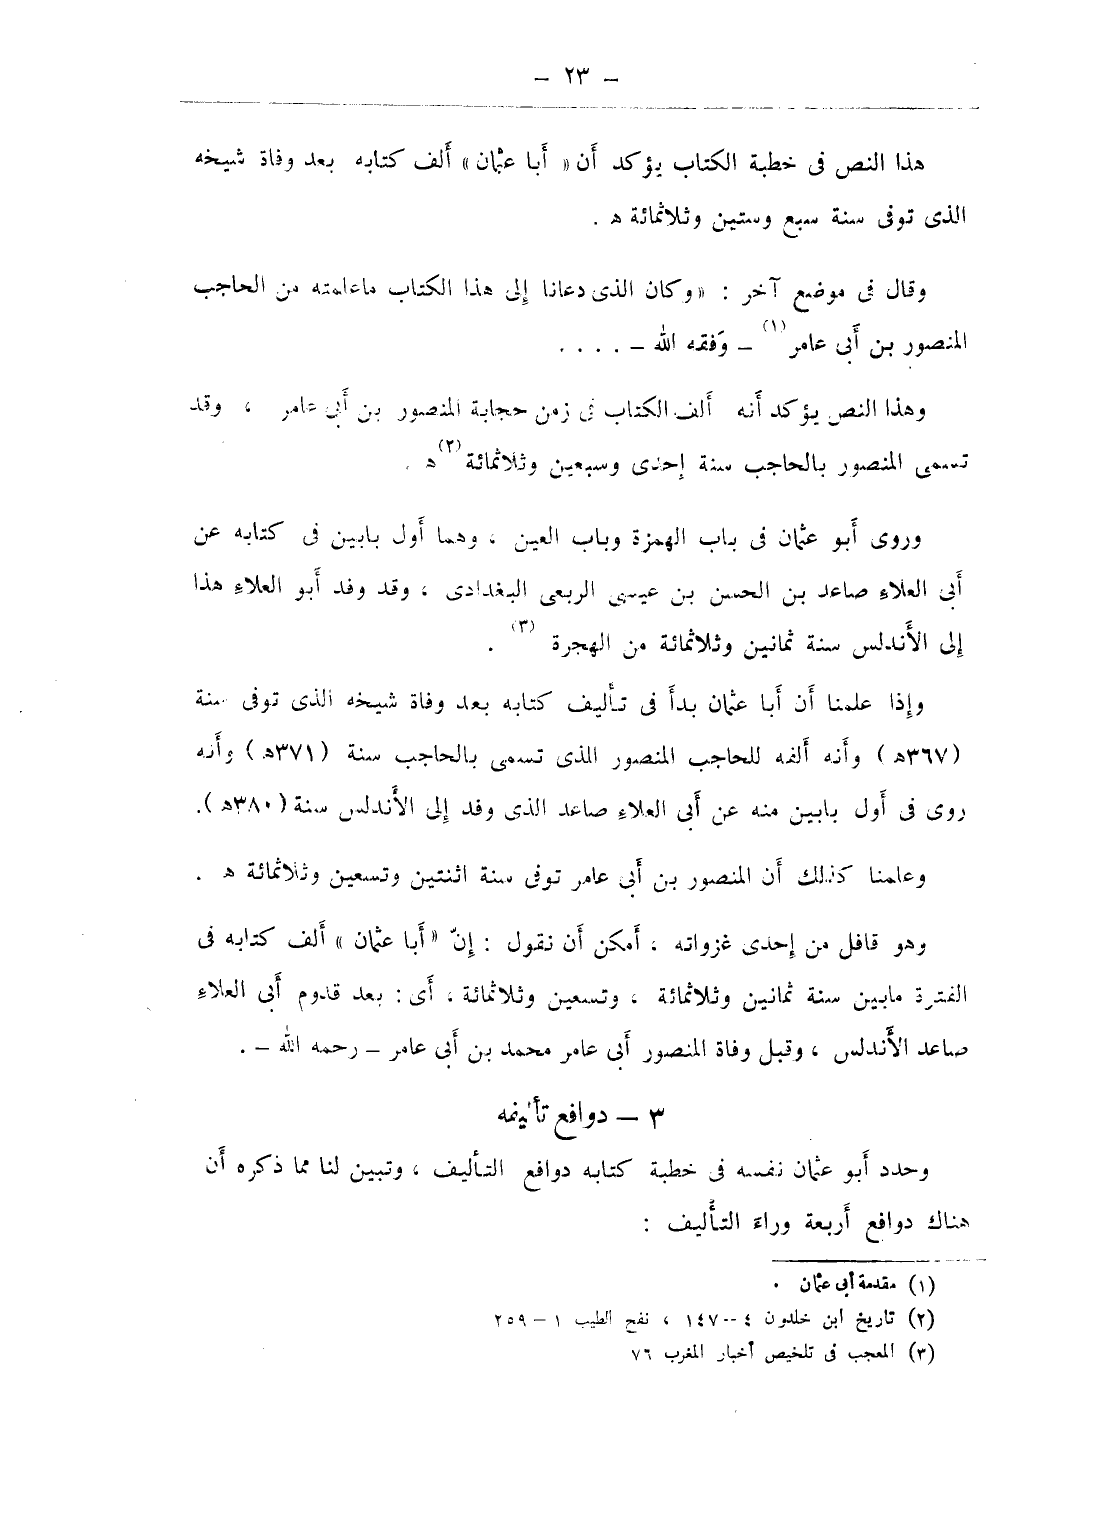 – ٢٣ –
هذا النص فى خطبة الكتاب يؤكد أَن « أَبا عثمان » أَلف كتابه بعد وفاة شيخه
الذى توفى سنة سبع وستين وثلاثمائة ه .
وقال فى موضع آخر : « وكان الذى دعانا إِلى هذا الكتاب ماعلمته من الحاجب
المنصور بن أَبى عامر (١) – وَفقه الله – . . . .
وهذا النص يؤكد أَنه أَلف الكتاب فى زمن حجابة المنصور بن أَبى عامر ، وقد
تسمى المنصور بالحاجب سنة إِحدى وسبعين وثلاثمائة (٢) ه .
وروى أَبو عثمان فى باب الهمزة وباب العين ، وهما أَول بابين فى كتابه عن
أَبى العلاءِ صاعد بن الحسن بن عيسى الربعى البغدادى ، وقد وفد أَبو العلاءِ هذا
إِلى الأَندلس سنة ثمانين وثلاثمائة من الهجرة (٣) .
وإِذا علمنا أَن أَبا عثمان بدأَ فى تأْليف كتابه بعد وفاة شيخه الذى توفى سنة
(٣٦٧ه ) وأَنه أَلفه للحاجب المنصور الذى تسمى بالحاجب سنة (٣٧١ه ) وأَنه
روى فى أَول بابين منه عن أَبى العلاءِ صاعد الذى وفد إِلى الأَندلس سنة (٣٨٠ه ).
وعلمنا كذلك أَن المنصور بن أَبى عامر توفى سنة اثنتين وتسعين وثلاثمائة ه .
وهو قافل من إِحدى غزواته ، أَمكن أَن نقول : إِنّ « أَبا عثمان » أَلف كتابه فى
الفترة مابين سنة ثمانين وثلاثمائة ، وتسعين وثلاثمائة ، أَى : بعد قدوم أَبى العلاءِ
صاعد الأَندلس ، وقبل وفاة المنصور أَبى عامر محمد بن أَبى عامر – رحمه الله – .
٣ – دوافع تأليفه
وحدد أَبو عثمان نفسه فى خطبة كتابه دوافع التأليف ، وتبين لنا مما ذكره أَن
هناك دوافع أَربعة وراءَ التأْليف :
(١) مقدمة أبى عثمان .
(٢) تاريخ ابن خلدون ٤ -- ١٤٧ ، نفح الطيب ١ – ٢٥٩
(٣) المعجب فى تلخيص أخبار المغرب ٧٦